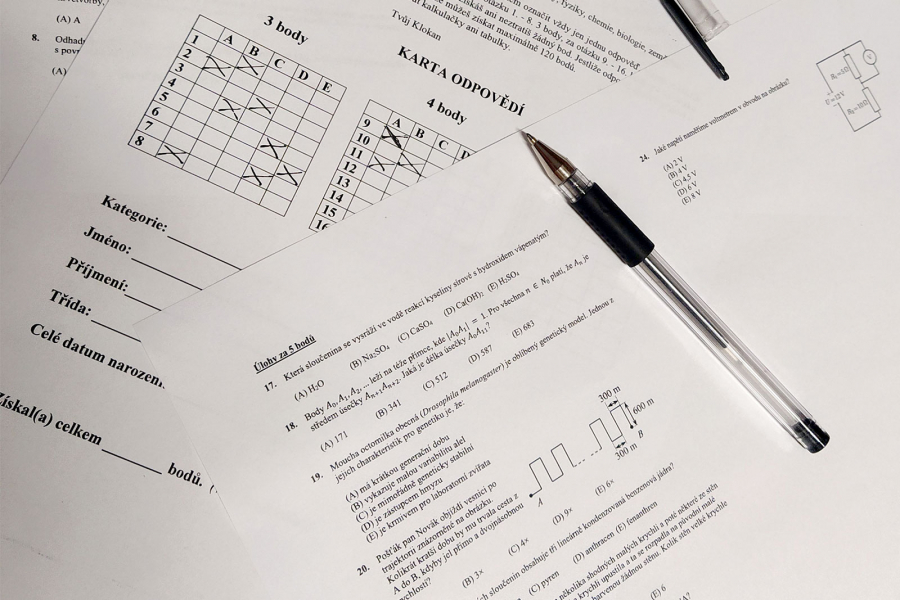 (A) A
8.
Odhad
s pov
(A)
3 body
A B C D E
1
2
3
4
5
6
7
8
fyziky, chemie, biologie, zem
označit vždy jen jednu odpověď
otázku 1. - 8. 3 body, za otázku 9. - 16.
získáš ani neztratíš žádný bod. Jestliže odpo
můžeš získat maximálně 120 bodů.
kalkulačky ani tabulky.
Tvůj Klokan
KARTA ODPOVĚDÍ
4 body
A B C D
9
10
11
12
13
14
15
16
Kategorie:
Jméno:
Příjmení:
Třída:
Celé datum narozen
Získal(a) celkem
bodů.
24. Jaké napětí naměříme voltmetrem v obvodu na obrázku?
(A) 2 V
(B) 4 V
(C) 4,5 V
(D) 6 V
(E) 8 V
U=12V
V
Úlohy za 5 bodů
17. Která sloučenina se vysráží ve vodě reakcí kyseliny sírové s hydroxidem vápenatým?
(A) H₂O (B) Na₂SO₄ (C) CaSO₄ (D) Ca(OH)₂ (E) H₂SO₄
18. Body A₀, A₁, A₂, ... leží na téže přímce, kde |A₀A₁| = 1. Pro všechna n ∈ N₀ platí, že Aₙ je
středem úsečky Aₙ₊₁Aₙ₊₂. Jaká je délka úsečky A₀A₁₁?
(A) 171 (B) 341 (C) 512 (D) 587 (E) 683
19. Moucha octomilka obecná (Drosophila melanogaster) je oblíbený genetický model. Jednou z
jejich charakteristik pro genetiku je, že:
(A) má krátkou generační dobu
(B) vykazuje malou variabilitu alel
(C) je mimořádně geneticky stabilní
(D) je zástupcem hmyzu
(E) je krmivem pro laboratorní zvířata
20. Pošťák pan Novák objíždí vesnici po
trajektorii znázorněné na obrázku.
Kolikrát kratší dobu by mu trvala cesta z
A do B, kdyby jel přímo a dvojnásobnou
rychlostí?
300 m
600 m
300 m
A
B
(B) 3× (C) 4× (D) 9× (E) 6×
ch sloučenin obsahuje tři lineárně kondenzovaná benzenová jádra?
(C) pyren (D) anthracen (E) fenanthren
několika shodných malých krychlí a poté některé ze stěn
krychli upustila a ta se rozpadla na původní malé
barvenou žádnou stěnu. Kolik stěn velké krychle
(E) 6